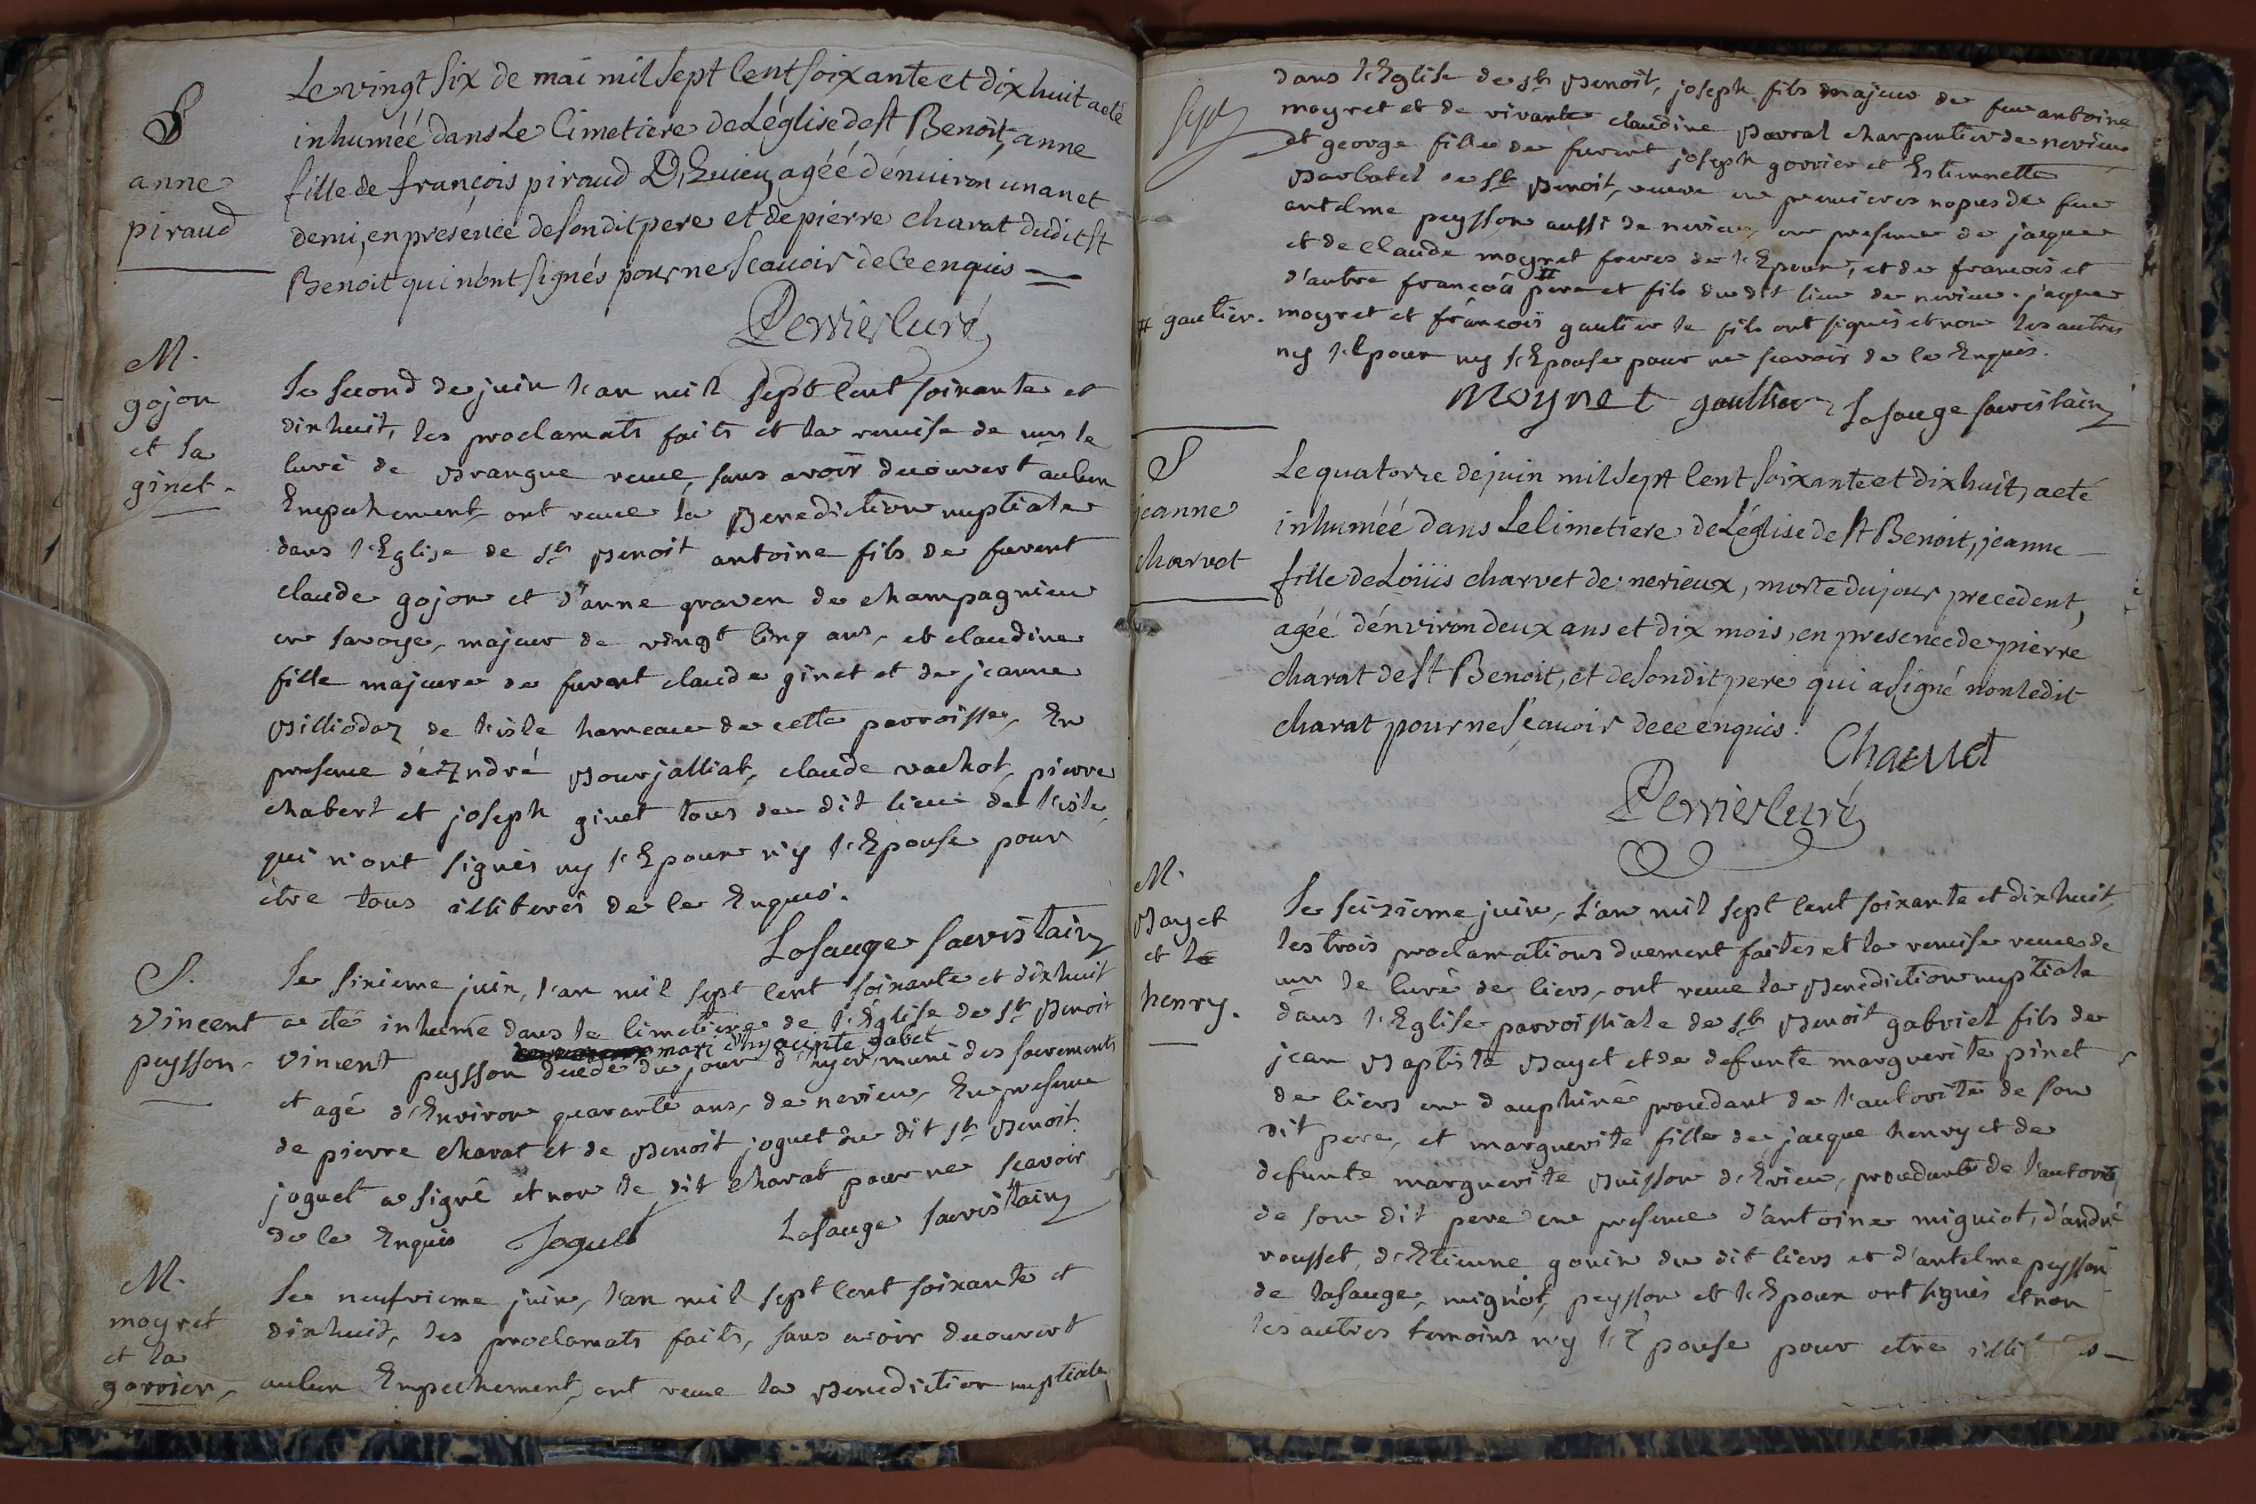 S
anne
piraud
Le vingt six de mai mil sept Cent soixante et dix huit a eté
inhuméé dans Le Cimetiere de L'église de st Benoit, anne
fille de françois piraud D'Evieu, agéé d'énuiron un an et
demi, en preséncé de son dit pere et de pierre charat dudit st
Benoit qui n'ont signés pour ne sçauoir de ce enquis
Perrier curé
M.
gojon
et la
ginet.
Le second de juin l'an mil sept Cent soixante et
dixhuit, les proclamats faits et la remise de mr le
Curé de Brangue recue, sans avoir decouvert aucun
Empechement, ont recue la Benediction nuptiale
dans l'Eglise de st Benoit antoine fils de furent
claude gojon et d'anne graven de champagnieu
en savoye, majeur de vingt Cinq ans, et claudine
fille majeure de furent claude ginet et de jeanne
Billiodaz de l'isle hameau de cette parroisse, En
presence de André Bourjalliat, claude vachot, pierre
chabert et joseph ginet tous du dit lieu de l'isle,
qui n'ont signés ny l'Epoux n'y l'Epouse pour
être tous illiterés de ce Enquis.
Lasauge sacristain
S.
Vincent
peysson.
Le sixieme juin, l'an mil sept Cent soixante et dixhuit
a eté inhumé dans le Cimetiere de l'Église de st Benoit
mari d'hyacinte babet
vincent peysson decedé du jour d'hyer, muni des sacrements
et agé d'Environ quarante ans, de nerieu, En presence
de pierre charat et de Benoit joguet du dit st Benoit.
joguet a signé et non le dit charat pour ne scavoir
de ce Enquis Joguet Lasauge sacristain
M.
moyret
et la
gorrier.
Le neufvieme juin, l'an mil sept Cent soixante et
dixhuit, les proclamats faits, sans avoir decouvert
aucun Empechement, ont recue la Benediction nuptiale
Sept
dans l'Eglise de st Benoit, joseph fils majeur de feu antoine
moyret et de vivante claudine Bavral charpentier de nerieu
et george fille de furent joseph gorrier et Estiennette
Barbatel de st Benoit, veuve en premieres nopces de feu
antelme peysson aussi de nerieu, en presence de jacque
et de claude moyret freres de l'Epoux, et de francois et
d'autre francois # pere et fils du dit lieu de nerieu. jacque
# gautier.
moyret et francois gautier le fils ont signés et non les autres
ny l'Epoux ny l'Epouse pour ne scavoir de ce Enquis.
Moyret gaultier Lasauge sacristain
S
jeanne
charvet
Le quatorze de juin mil sept Cent soixante et dix huit, a eté
inhuméé dans Le Cimetiere de L'église de st Benoit, jeanne
fille de Loüis charvet de nerieux, morte du jour precedent,
agéé d'énviron deux ans et dix mois, en presence de pierre
charat de st Benoit, et de son dit pere qui a signé non ledit
charat pour ne sçavoir de ce enquis.
Charvet
Perrier curé
M.
Bayet
et la
henry.
Le seizieme juin, l'an mil sept Cent soixante et dixhuit,
les trois proclamations duement faites et la remise recue de
mr le Curé de Ciers, ont recue la Benediction nuptiale
dans l'Eglise parroissiale de st Benoit gabriel fils de
jean Baptiste Bayet et de defunte marguerite pinet
de Ciers en dauphiné procedant de l'autorité de son
dit pere, et marguerite fille de jacque henry et de
defunte marguerite Buisson d'Evieu, procedante de l'autorité
de son dit pere en presence d'antoine migniot, d'andré
rousset, d'Etienne gonin du dit Ciers et d'antelme peysson
de lasauge, migniot, peysson et l'Epoux ont signés et non
les autres temoins n'y l'Epouse pour etre